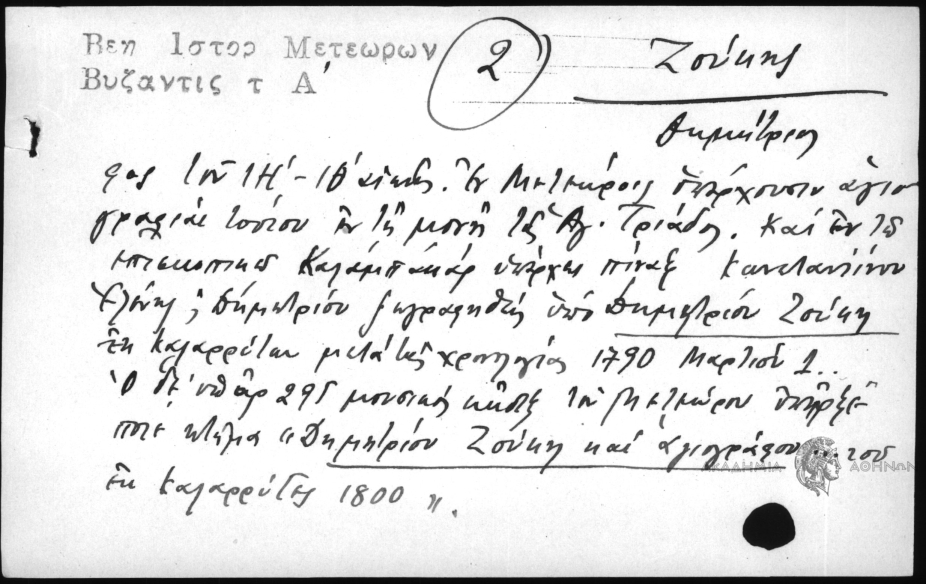 Βεη Ιστορ Μετεωρων
Βυζαντις τ Α'
2
Ζούκης
Δημήτριος
φος τοῦ ΙΗ' – ΙΘ' αἰῶνος. Ἐν Μετεώροις ὑπάρχουσιν ἁγιο
γραφίαι τούτου ἐν τῇ μονῇ τῆς Ἁγ. Τριάδος. Καὶ ἐν τῷ
ἐπισκοπικῷ Καλαμπάκας ὑπάρχει πίναξ Κωνσταντίνου
Ἑλένης, Δημητρίου ζωγραφηθεὶς ὑπὸ Δημητρίου Ζούκη
ἐκ Καλαρρύτων μετὰ τῆς χρονολογίας 1790 Μαρτίου 1..
Ὁ δὲ ὑπ' ἀρ 295 μουσικὸς κῶδιξ τοῦ Μετεώρου ὑπῆρξέ
ποτε κτῆμα « Δημητρίου Ζούκη καὶ ἁγιογράφου ... του
ἐκ Καλαρρύτης 1800 ».
ΑΚΑΔΗΜΙΑ ΑΘΗΝΩΝ